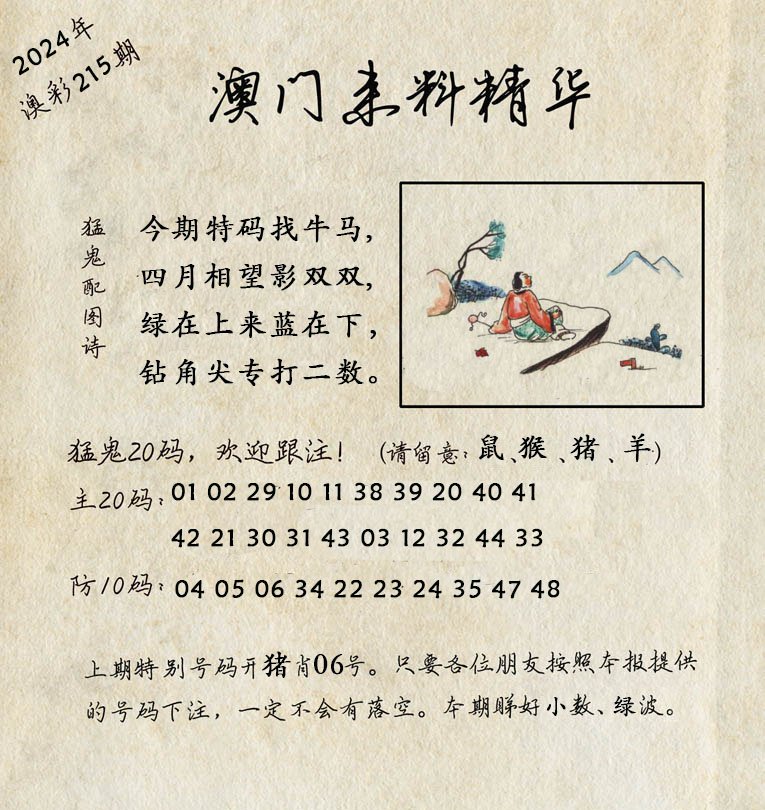 2024年
澳彩215期
澳门来料精华
猛鬼配图诗
今期特码找牛马,
四月相望影双双,
绿在上来蓝在下,
钻角尖专打二数。
猛鬼20码，欢迎跟注！（请留意：鼠、猴、猪、羊）
主20码：01 02 29 10 11 38 39 20 40 41
42 21 30 31 43 03 12 32 44 33
防10码：04 05 06 34 22 23 24 35 47 48
上期特别号码开猪肖06号。只要各位朋友按照本报提供
的号码下注，一定不会有落空。本期睇好小数、绿波。